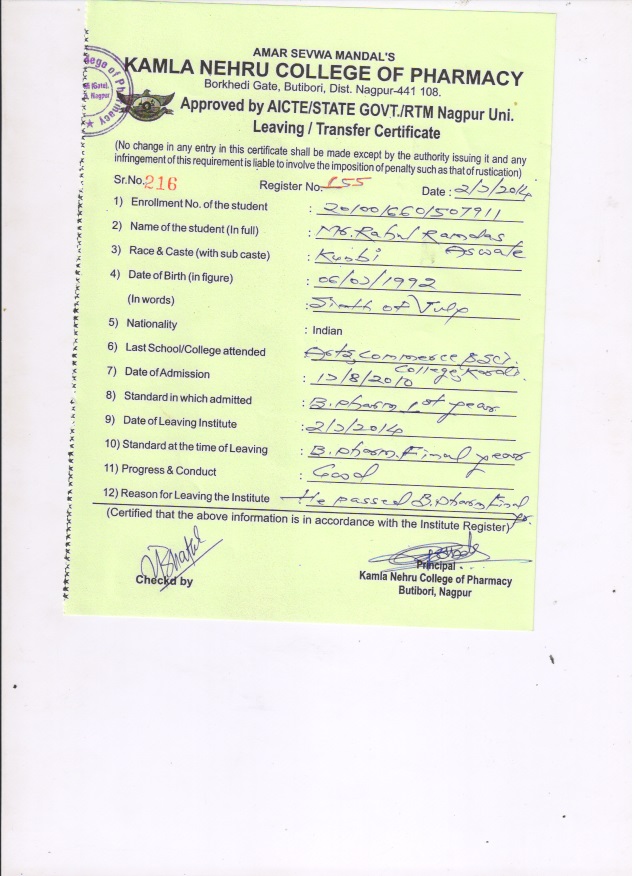 llege of Pharmacy
AMAR SEVWA MANDAL'S
KAMLA NEHRU COLLEGE OF PHARMACY
Borkhedi Gate, Butibori, Dist. Nagpur-441 108.
Approved by AICTE/STATE GOVT./RTM Nagpur Uni.
Leaving / Transfer Certificate
(No change in any entry in this certificate shall be made except by the authority issuing it and any
infringement of this requirement is liable to involve the imposition of penalty such as that of rustication)
Sr.No. 216 Register No. 155 Date : 2/7/2014
1) Enrollment No. of the student : 20100/660/507911
2) Name of the student (In full) : Mr. Rahul Ramdas Aswale
3) Race & Caste (with sub caste) : Kunbi
4) Date of Birth (in figure) : 06/07/1992
(In words) : of July
5) Nationality : Indian
6) Last School/College attended Arts, Commerce & Sci. College,
7) Date of Admission : /8/2010
8) Standard in which admitted : B.pharm 1st year
9) Date of Leaving Institute : 2/7/2014
10) Standard at the time of Leaving : B.pharm. Final year
11) Progress & Conduct : Good
12) Reason for Leaving the Institute He passed B.pharm Final yr.
(Certified that the above information is in accordance with the Institute Register)
Checkd by
Principal
Kamla Nehru College of Pharmacy
Butibori, Nagpur